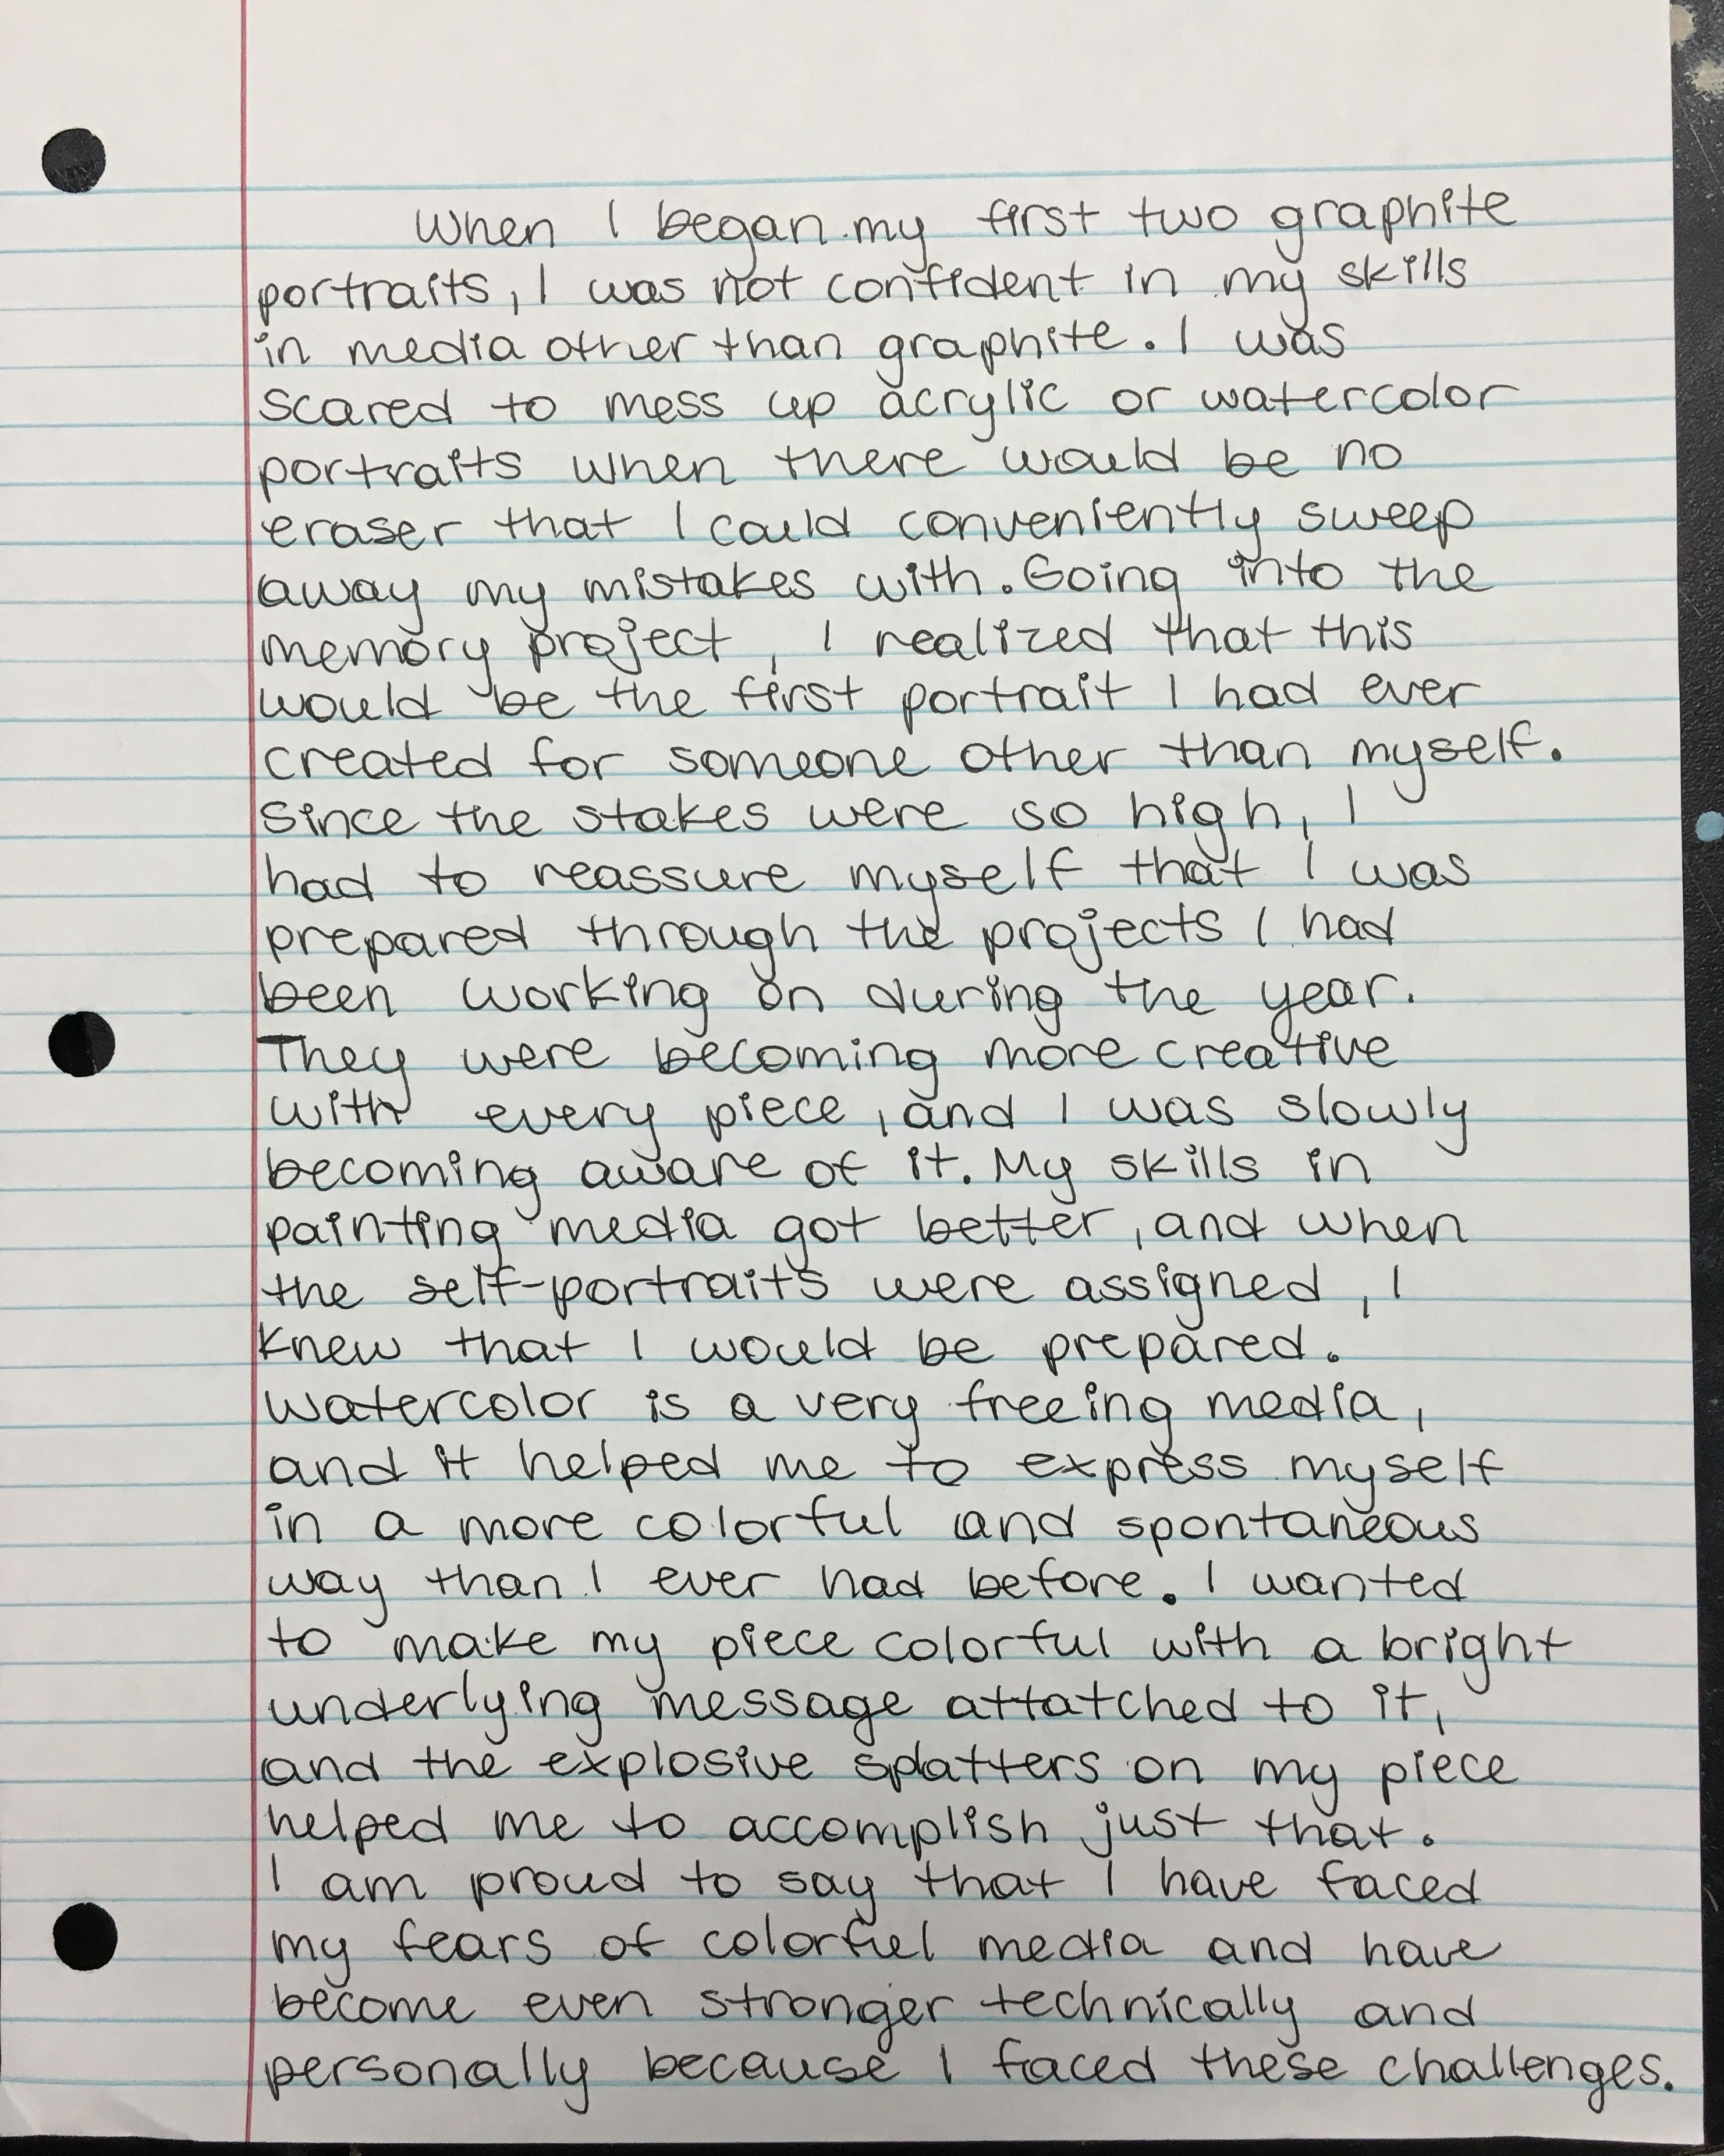 When I began my first two graphite
portraits, I was not confident in my skills
in media other than graphite. I was
scared to mess up acrylic or watercolor
portraits when there would be no
eraser that I could conveniently sweep
away my mistakes with. Going into the
memory project, I realized that this
would be the first portrait I had ever
created for someone other than myself.
Since the stakes were so high, I
had to reassure myself that I was
prepared through the projects I had
been working on during the year.
They were becoming more creative
with every piece, and I was slowly
becoming aware of it. My skills in
painting media got better, and when
the self-portraits were assigned, I
knew that I would be prepared.
Watercolor is a very freeing media,
and it helped me to express myself
in a more colorful and spontaneous
way than I ever had before. I wanted
to make my piece colorful with a bright
underlying message attatched to it,
and the explosive splatters on my piece
helped me to accomplish just that.
I am proud to say that I have faced
my fears of colorful media and have
become even stronger technically and
personally because I faced these challenges.